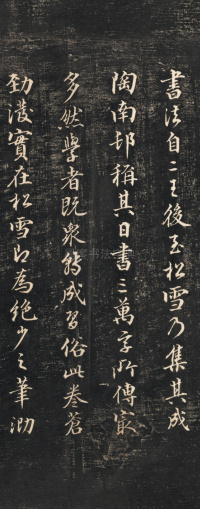 書法自二王後至松雪乃集其成
陶南邨稱其日書三萬字所傳寔
多然學者既衆轉成習俗此卷蒼
勁濃實在松雪即為絶少之筆沏